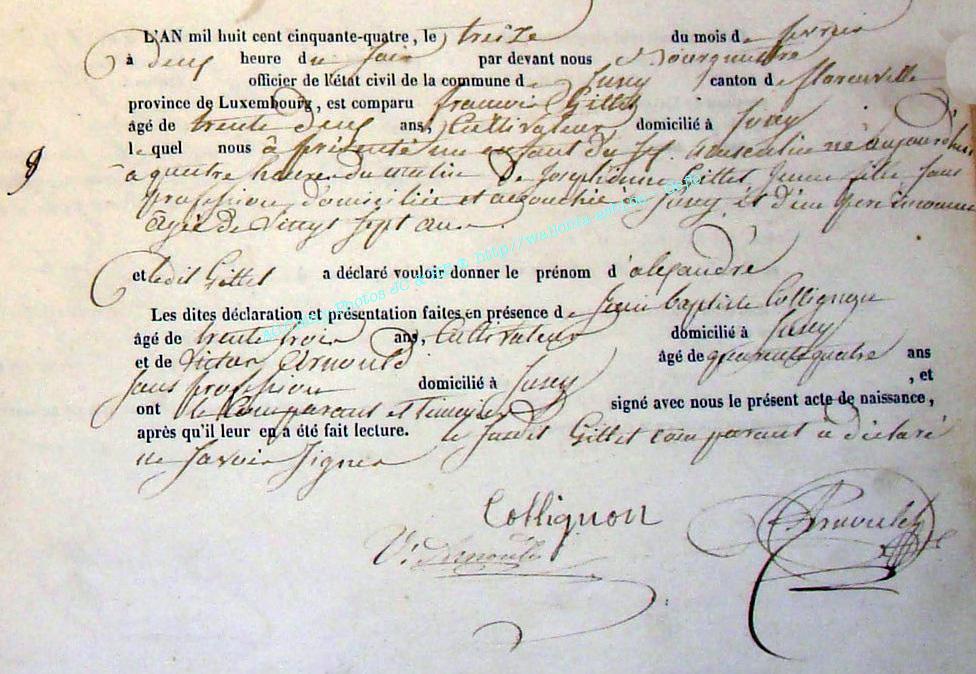 L'AN mil huit cent cinquante-quatre, le treize du mois de fevrier
à deux heure du Soir par devant nous
officier de l'état civil de la commune de canton de florenville
province de Luxembourg, est comparu francois Gillet
âgé de trente deux ans, Cultivateur domicilié à
le quel nous à présenté un enfant du masculin né aujourd'hui
a quatre heures du matin De Josephinne Gillet, fille Sans
profession, domiciliée et accouchée a et d'un père inconnu
Agée de Vingt Sept ans
et ledit Gillet a déclaré vouloir donner le prénom d'alexandre
Les dites déclaration et présentation faites en présence de Jean baptiste Collignon
âgé de trente trois ans, Cultivateur domicilié à
et de Victor Arnould âgé de quarante quatre ans
Sans profession domicilié à , et
ont le Comparant et temoins signé avec nous le présent acte de naissance,
après qu'il leur en a été fait lecture. le Gillet comparant a déclaré
ne Savoir Signer
Collignon
V. Arnould
http://wallonia-asbl.be